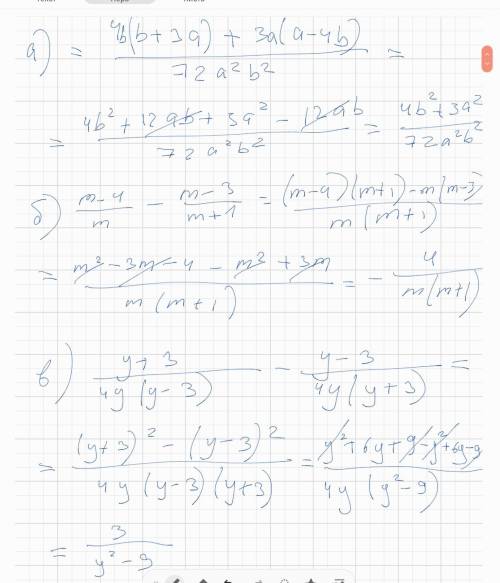 а) = (4b(b+3a) + 3a(a-4b))/(72a²b²) =
= (4b² + 12ab + 3a² - 12ab)/(72a²b²) = (4b²+3a²)/(72a²b²)
б) (m-4)/m - (m-3)/(m+1) = ((m-4)(m+1)-m(m-3))/(m(m+1))
= (m² - 3m - 4 - m² + 3m)/(m(m+1)) = - 4/(m(m+1))
в) (y+3)/(4y(y-3)) - (y-3)/(4y(y+3)) =
= ((y+3)² - (y-3)²)/(4y(y-3)(y+3)) = (y²+6y+9-y²+6y-9)/(4y(y²-9))
= 3/(y²-9)